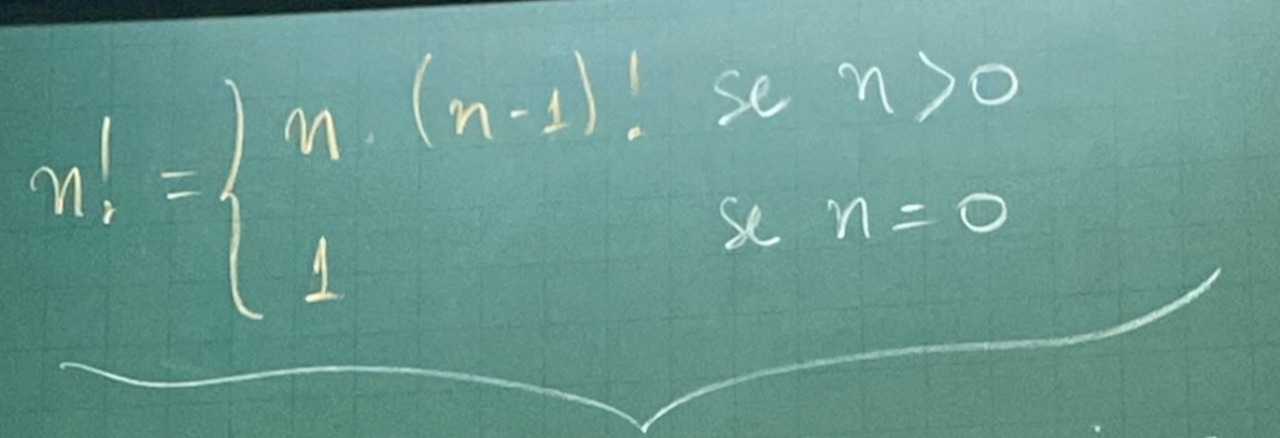 n! = { n . (n-1)! se n>0
1 se n=0